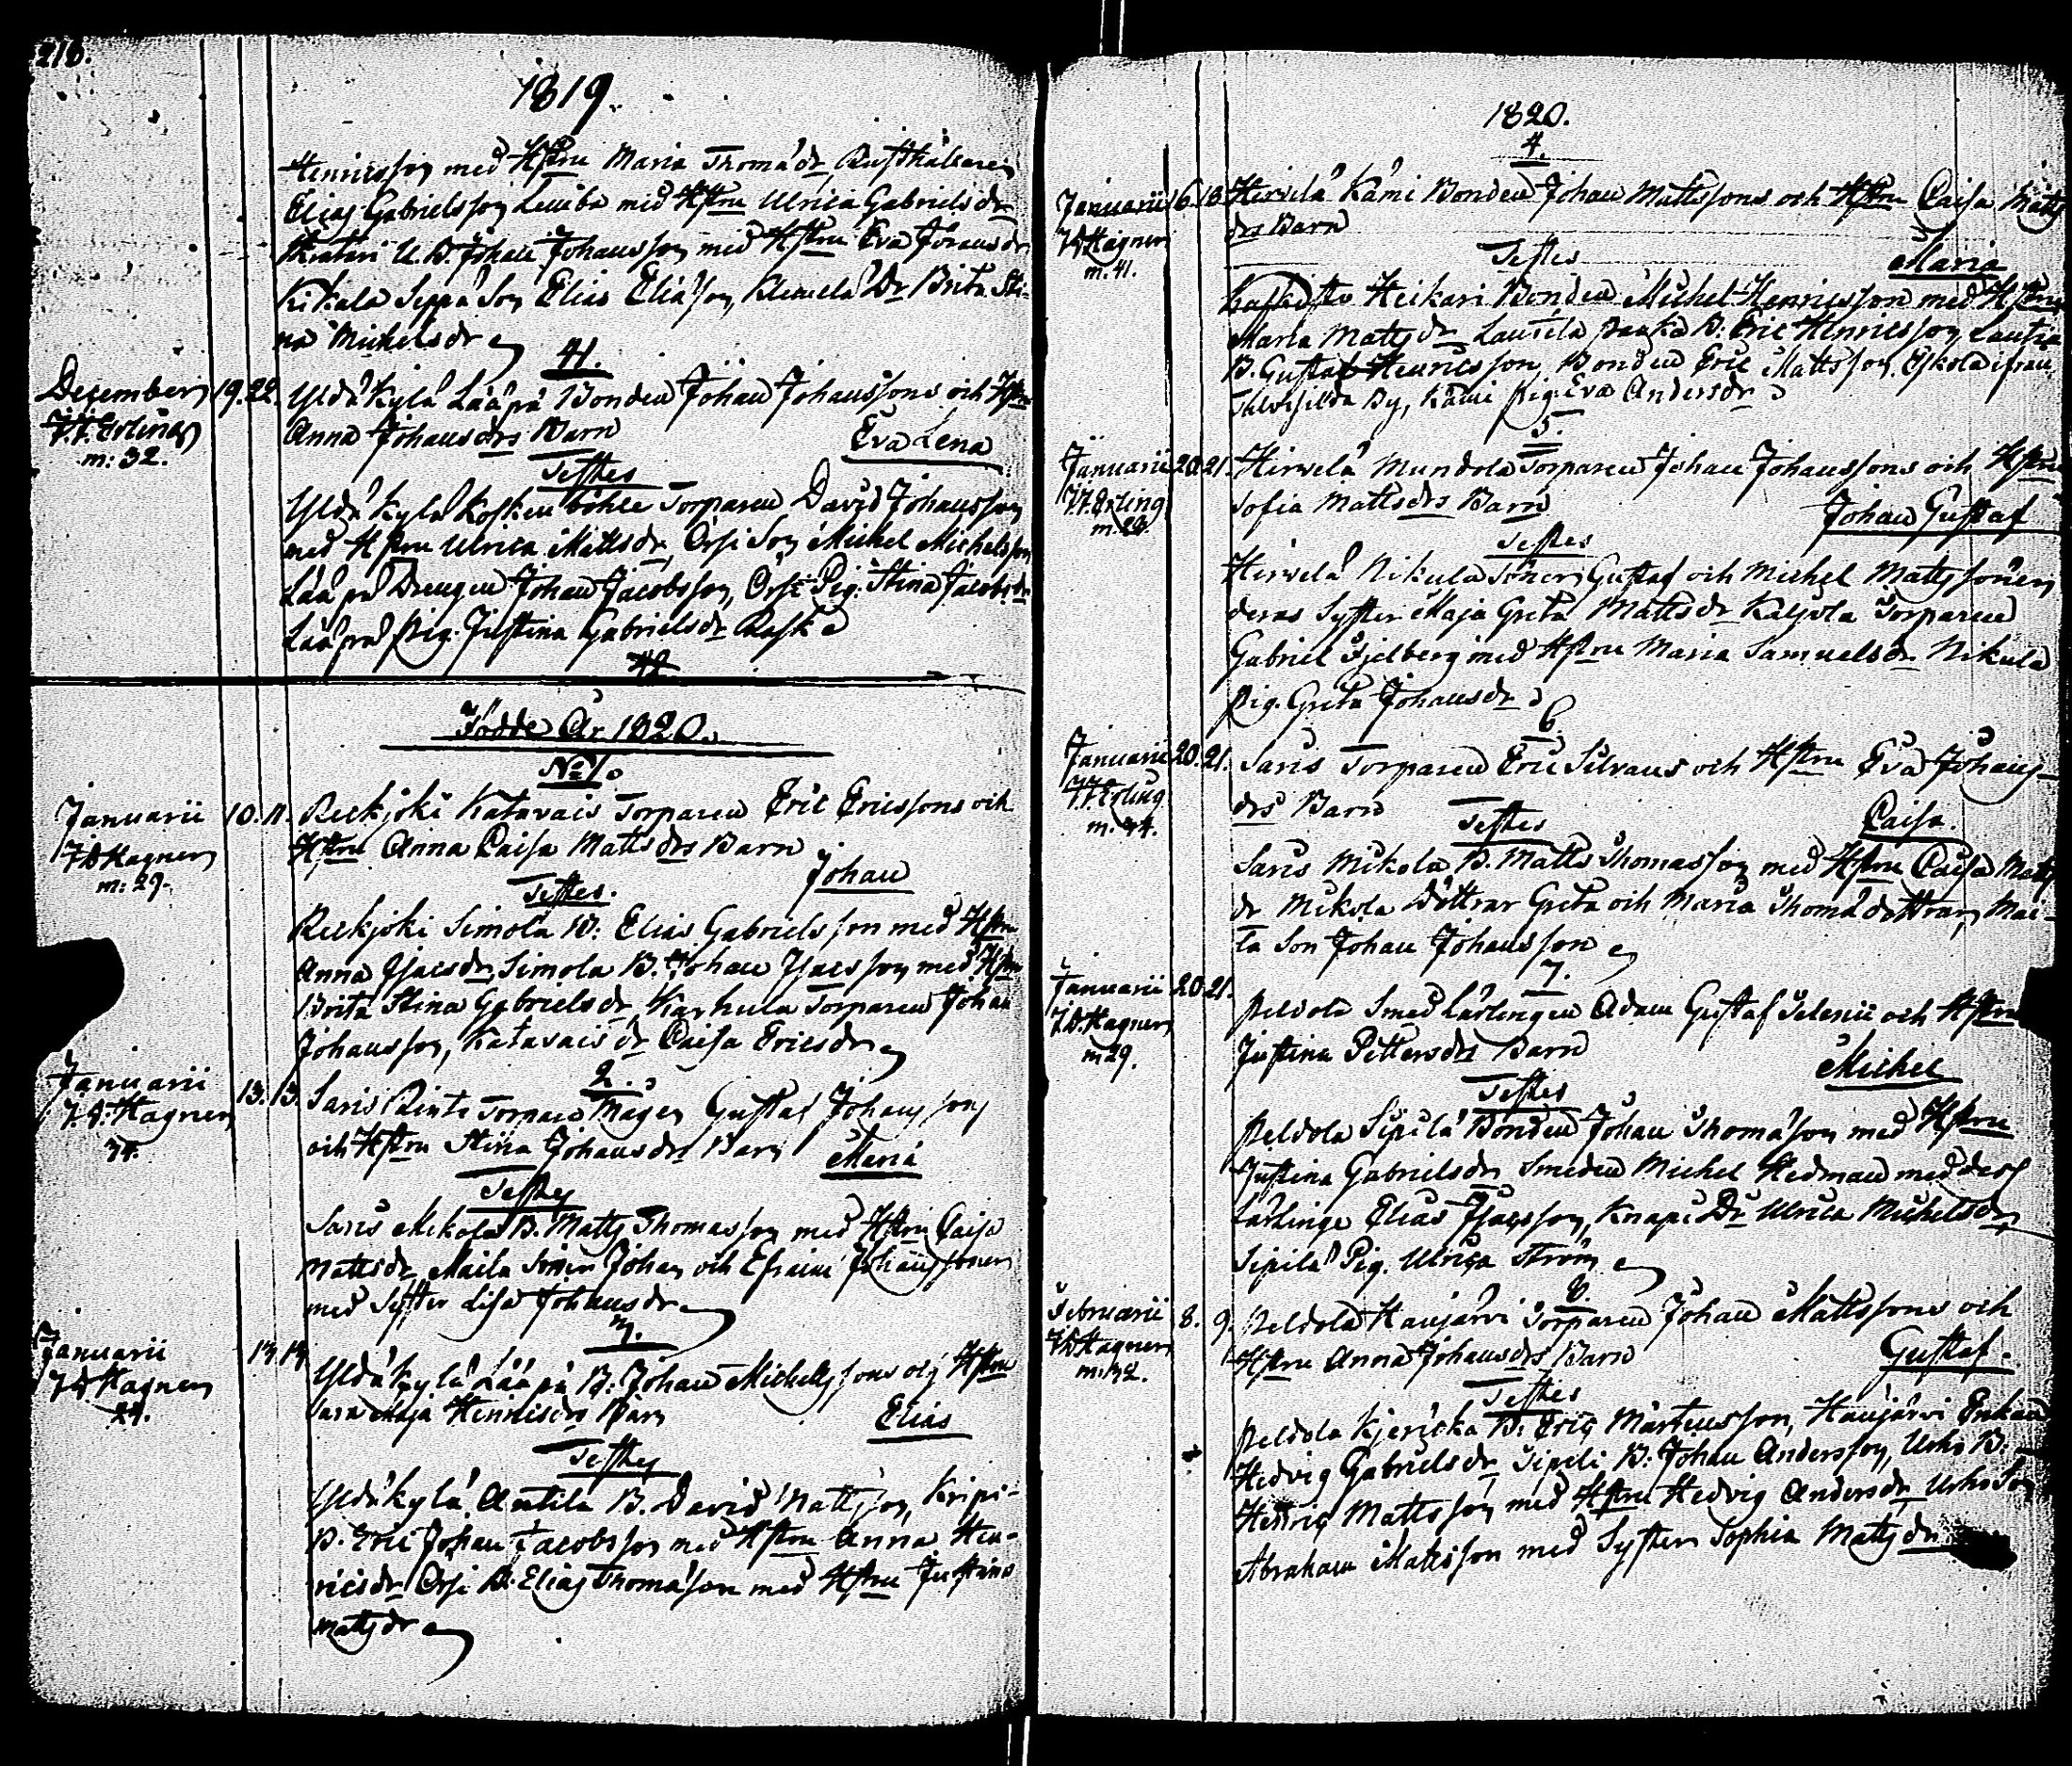 216.
1819.
Henricsson med Hstru Maria Thomædr, Rusthållaren
Elias Gabrielsson Leuiba med Hstru Ulrica Gabrielsdr
U. B. Johan Johansson med Hstru Eva Johansdr
Kikala Seppä Son Elias Eliæson, Klemelä Dr Brita Sti-
na Michelsdr
41.
Decemberis 19. 22. Yldäkylä Lääpä Bonden Johan Johanssons och Hstru
J.F. Erling Anna Johansdrs Barn Eva Lena
m: 32.
Testes
Yldäkylä Koskenböhle Torparen David Johansson
med Hstru Ulrica Mattsdr, Orsi Son Michel Michelsson
Lääpä Drengen Johan Jacobsson, Orsi Pig. Stina Jacobsdr
Lääpä Pig. Justina Gabrielsdr Rask
42
Födde År 1820.
No 1.
Januarii 10. 11. Reekjoki Katavais Torparen Eric Ericssons och
J D Hagner Hstru Anna Caisa Mattsdrs Barn
m: 29. Johan
Testes.
Reekjoki Simola B: Elias Gabrielsson med Hstru
Anna Isacsdr, Simola B. Johan Isacsson med Hstru
Brita Stina Gabrielsdr, Karhula Torparen Johan
Johansson, Katavais dr Caisa Ericsdr
2.
Januarii 13. 13. Saris Rinte Torpare Mågen Gustaf Johansson
J. D. Hagner och Hstru Stina Johansdrs Barn Maria
34.
Testes
Saris Mikola B. Matts Thomasson med Hstru Caisa
Mattsdr, Maila Söner Johan och Efraim Johanssöner
med Syster Lisa Johansdr
3.
Januarii 13. 13. Yldäkylä Lääpä B: Johan Michelssons och Hstru
J D Hagner Sara Maja Henricsdrs Barn Elias
29.
Testes
Yldäkylä Antila B. David Mattsson, Kripi-
B. Eric Johan Jacobsson med Hstru Anna Hen-
ricsdr Orsi B. Elias Thomasson med Hstru Justina
Mattsdr
1820.
4.
Januarii 16. 16. Hirvelä Kämi Bonden Johan Mattssons och Hstru Caisa Matts
J D Hagner drs Barn
m. 41. Testes Maria
Heikari Bonden Michel Henricsson med Hstru
Maria Mattsdr Lautela B. Eric Henricsson, Lautia
B. Gustaf Henricsson, Bonden Eric Mattsson Eskola ifrån
By, Kämi Pig. Eva Andersdr
5.
Januarii 20. 21. Hirvelä Mundola Torparen Johan Johanssons och Hstru
J F Erling Sofia Mattsdrs Barn Johan Gustaf
Testes
Hirvelä Nikula Söner Gustaf och Michel Matts söner,
deras Syster Maja Greta Mattsdr Torparen
Gabriel Sjelberg med Hstru Maria Samuelsdr Nikula
Pig. Greta Johansdr
6.
Januarii 20. 21. Saris Torparen Eric Silvans och Hstru Eva Johans-
J F Erling drs Barn Caisa.
m. 34. Testes
Saris Mikola B. Matts Thomasson med Hstru Caisa Matts
dr Mikola Döttrar Greta och Maria Thomædöttrar, Mai-
la Son Johan Johansson
7.
Januarii 20 21. Peldola Smed Lärlingen Adam Gustaf Selenii och Hstru
J.D. Hagner Justina Pettersdrs Barn Michel
m 29.
Testes
Peldola Sipilä Bonden Johan Thomæson med Hstru
Justina Gabrielsdr Smeden Michel Hedman med dess
Lärlinge Elias Isacsson, Knapi Dr Ulrica Michelsdr
Sipilä Pig. Ulrica Ström
8.
Februarii 8. 9. Peldola Haujärvi Torparen Johan Mattssons och
J D Hagner Hstru Anna Johansdrs Barn Gustaf.
m: 32.
Testes
Peldola Kjericka B: Eric Mårtensson, Haujärvi Enkan
Hedvig Gabrielsdr, Sipili B: Johan Andersson, Urho B:
Henric Mattsson med Hstru Hedvig Andersdr Urho Son
Abraham Mattsson med Systern Sophia Mattsdr